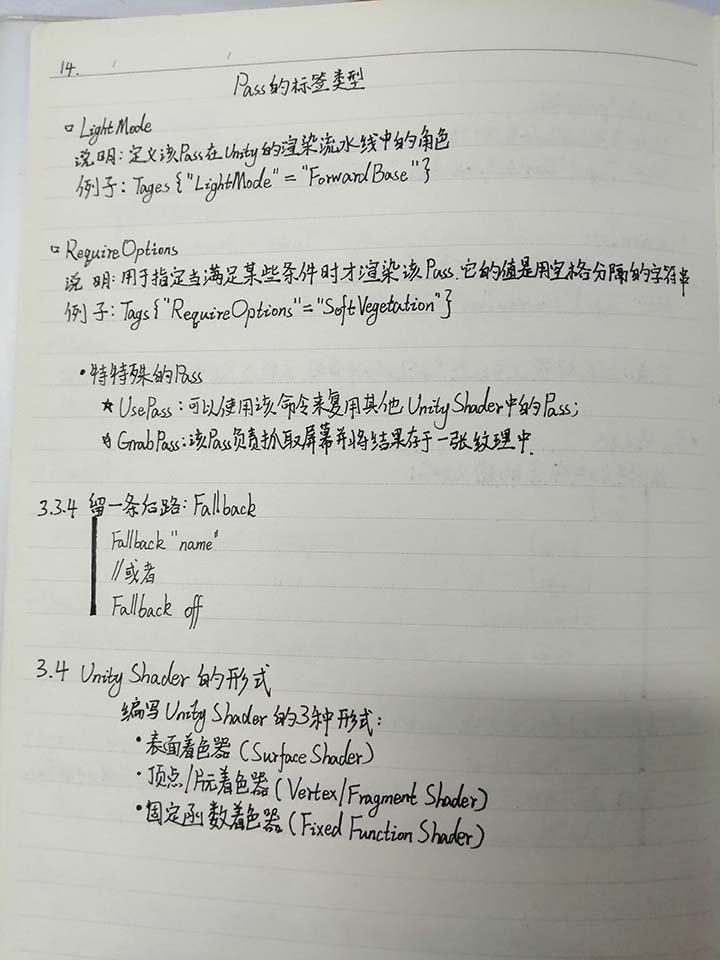 14.
Pass的标签类型
LightMode
说明:定义该Pass在Unity的渲染流水线中的角色
例子: Tages {"LightMode" = "ForwardBase"}
RequireOptions
说明:用于指定当满足某些条件时才渲染该Pass.它的值是用空格分隔的字符串
例子: Tags {"RequireOptions"="SoftVegetation"}
•特特殊的Pass
★ UsePass:可以使用该命令来复用其他UnityShader中的Pass;
☆ GrabPass:该Pass负责抓取屏幕并将结果存于一张纹理中.
3.3.4 留一条后路: Fallback
Fallback "name"
//或者
Fallback off
3.4 Unity Shader 的形式
编写Unity Shader的3种形式:
•表面着色器 (Surface Shader)
•顶点/片元着色器(Vertex/Fragment Shader)
•固定函数着色器(Fixed Function Shader)